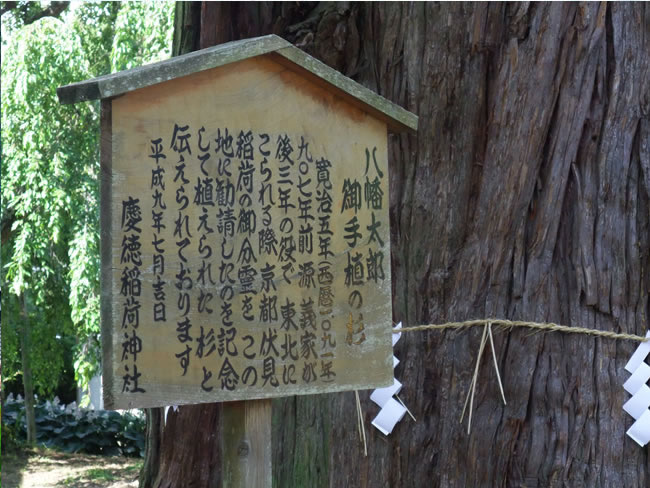 八幡太郎
御手植の杉
寛治五年(西暦一〇九一年)
九〇七年前源義家が
後三年の役で東北に
こられる際京都伏見
稲荷の御分霊をこの
地に勧請したのを記念
して植えられた杉と
伝えられております
平成九年七月吉日
慶徳稲荷神社